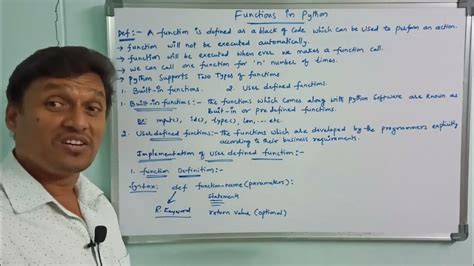 Functions in Python
Def:- A function is defined as a block of code which can be used to perform an action.
→ function will not be executed automatically.
→ function will be executed when ever we makes a function call.
→ we can call one function for 'n' number of times.
→ Python supports Two types of functions
1. Built-in functions 2. User defined functions.
1. Built-in functions:- the functions which comes along with python software are known as
Built-in or pre defined functions.
Ex: input(), id(), type(), len(), ... etc.
2. User defined functions:- the functions which are developed by the programmers explicitly
according to their business requirements.
Implementation of User defined function:-
1. function Definition:-
Syntax: def function-name(parameters):
statements
R. Keyword return value (optional)